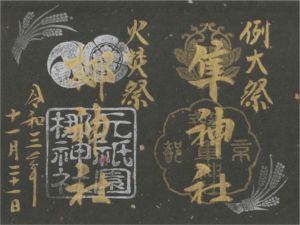 例大祭
隼神社
火焚祭
梛神社
令和三年
十一月二十一日
元祇園
梛神社
京都